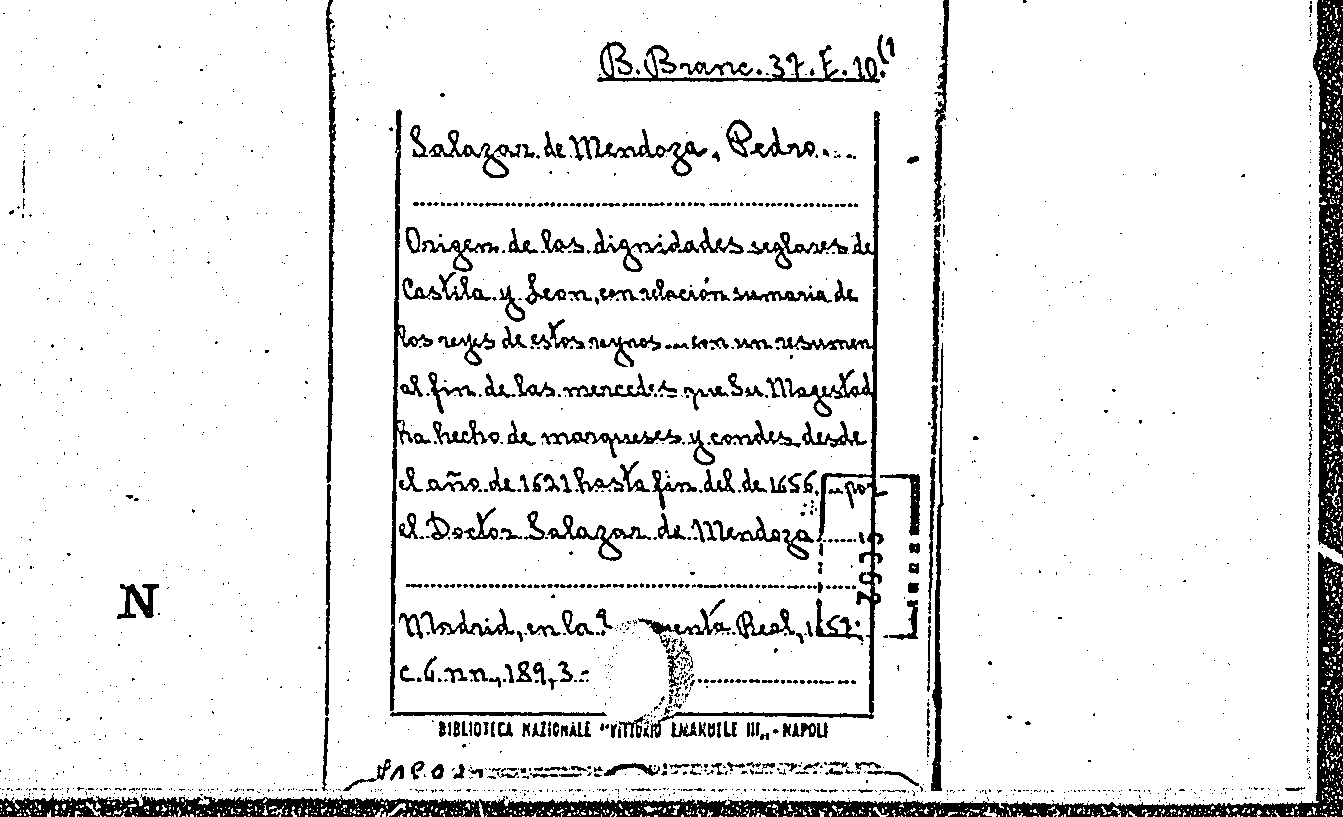 B. Branc. 37. E. 10.(1
Salazar de Mendoza, Pedro....
Origen de las dignidades seglares de
Castila y Leon, con relación sumaria de
los reyes de estos reynos... con un resumen
al fin de las mercedes que Su Magestad
ha hecho de marqueses y condes desde
el año de 1621 hasta fin del de 1656... por
el Doctor Salazar de Mendoza
Madrid, en la Real, 1657.
c. 6 nn., 189, 3.-
BIBLIOTECA NAZIONALE "VITTORIO EMANUELE III" - NAPOLI
N